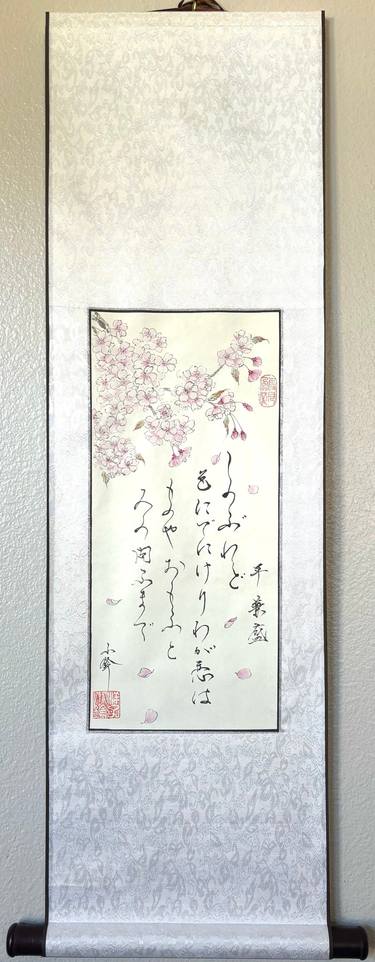 平兼盛
しのぶれど
色にでにけりわが恋は
ものやおもふと
人の問ふまで